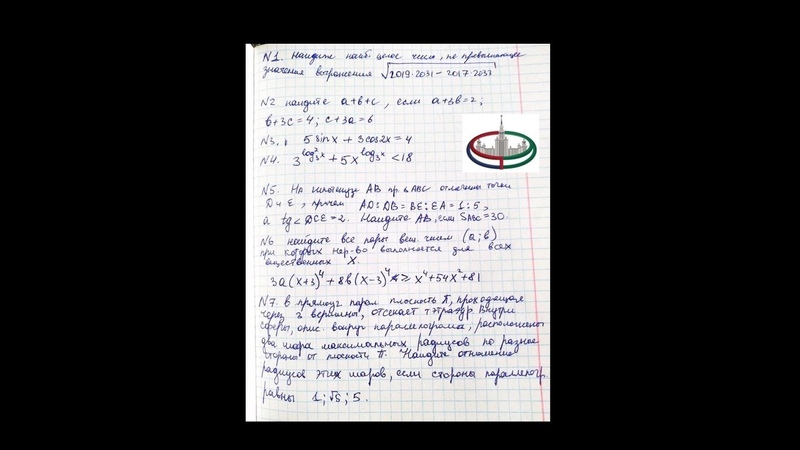 N1. Найдите наиб. целое число, не превышающее
значения выражения √2019·2031 − 2017·2033
N2 найдите a+b+c, если a+3b=2;
b+3c=4; c+3a=6
N3. 5 sin x + 3 cos 2x = 4
N4. 3^{log₃² x} + 5x^{log₃ x} < 18
N5. На гипотенузе AB пр. Δ ABC отмечены точки
D и E, причем AD:DB = BE:EA = 1:5,
а tg∠DCE = 2. Найдите AB, если S_ABC = 30.
N6 найдите все пары вещ. чисел (a; b)
при которых нер-во выполняется для всех
вещественных X.
3a(x+3)⁴ + 8b(x−3)⁴ ≥ x⁴ + 54x² + 81
N7. В прямоуг парал плоскость π, проходящая
через 3 вершины, отсекает тэтраэдр. Внутри
сферы, опис. вокруг параллелограмма, расположены
два шара максимальных радиусов по разные
стороны от плоскости π. Найдите отношение
радиусов этих шаров, если стороны параллелогр.
равны 1; √5; 5.